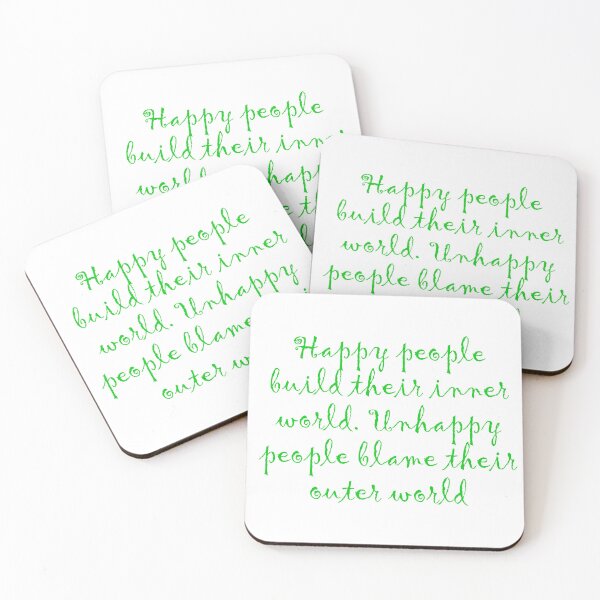 Happy people
build their inner
Happy people
build their inner
world. Unhappy
people blame their
Happy people
build their inner
world. Unhappy
people blame
outer
Happy people
build their inner
world. Unhappy
people blame their
outer world